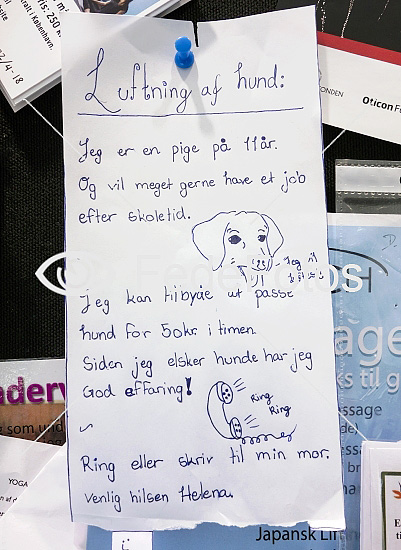 Luftning af hund:
Jeg er en pige på 11år.
Og vil meget gerne have et job
efter skoletid.
Jeg vil
Jeg kan tilbyde ut passe
hund for 50kr. i timen.
Siden jeg elsker hunde har jeg
God effaring!
Ring
Ring
Ring eller skriv til min mor.
Venlig hilsen Helena.
Pris: 250
i København.
22/4-18
FONDEN
Oticon
YOGA
ssage
Japansk